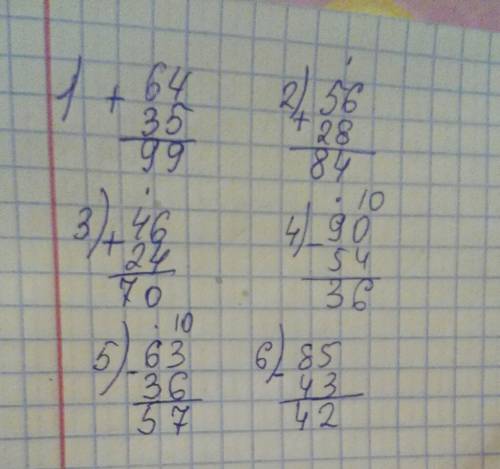 1) + 64
35
99
2) + 56
28
84
3) + 46
24
70
10
4) - 90
54
36
10
5) - 63
36
57
6) - 85
43
42